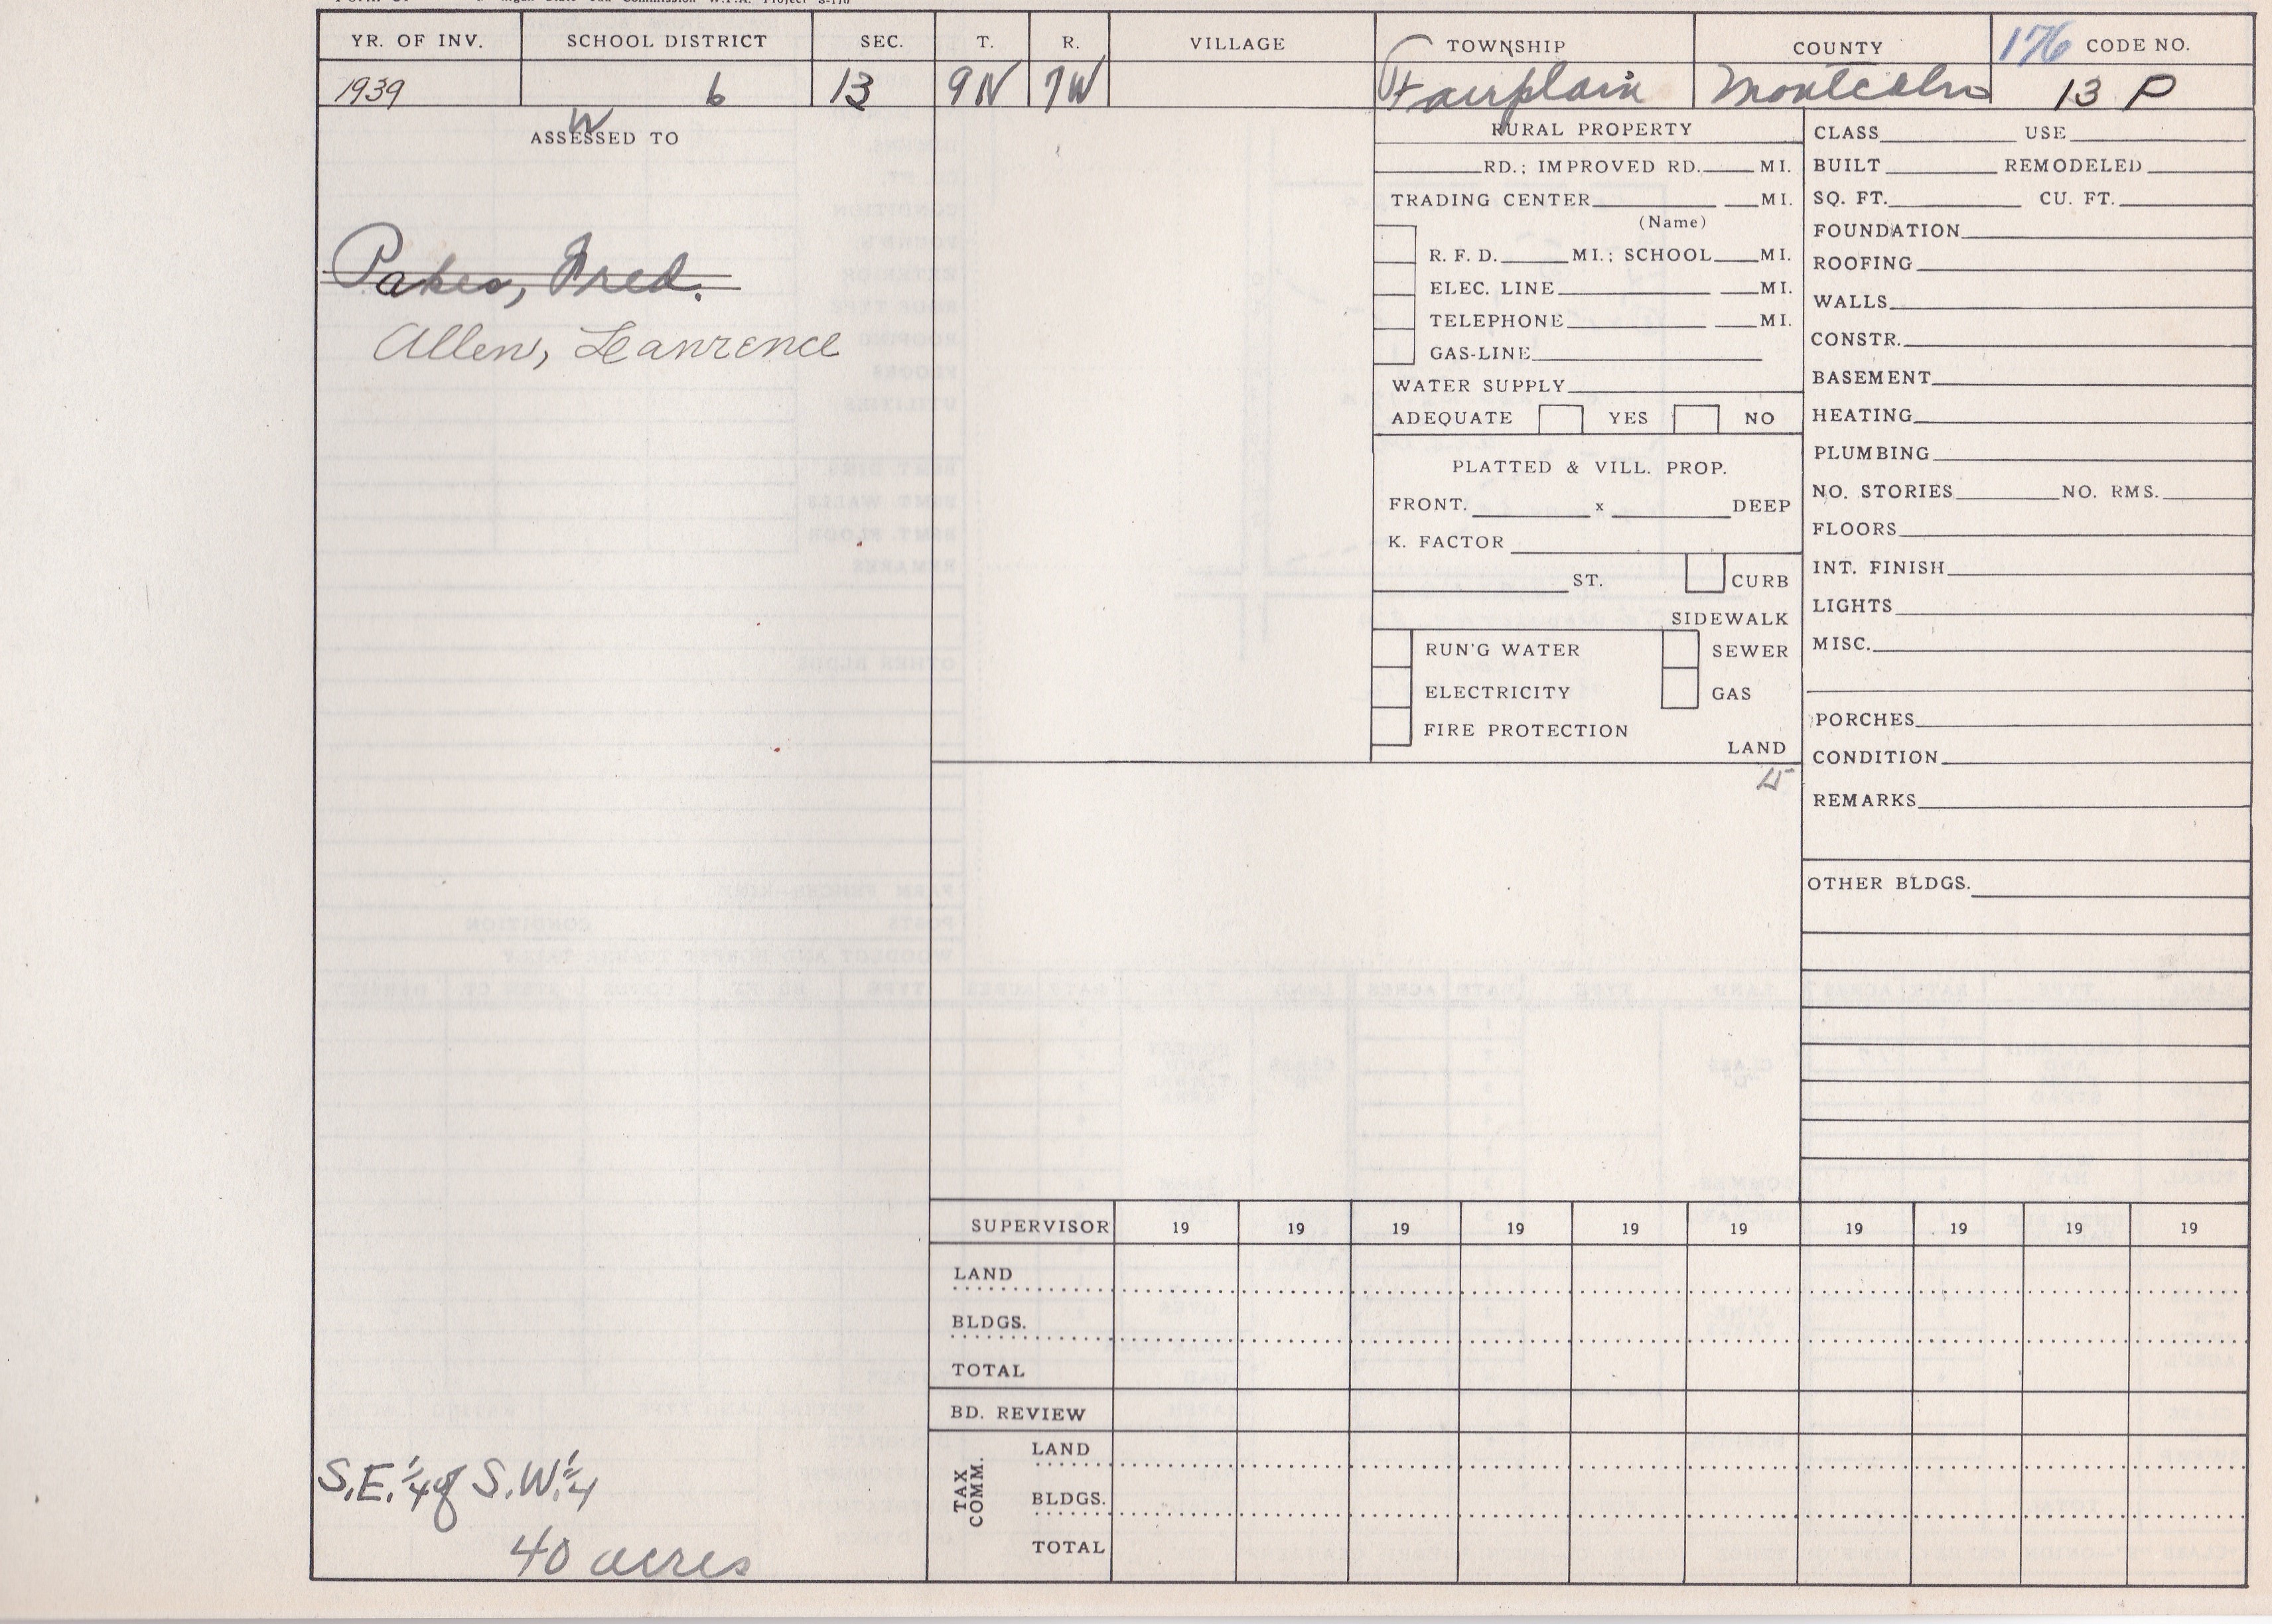 Tax Commission W.P.A. Project
YR. OF INV. SCHOOL DISTRICT SEC. T. R. VILLAGE TOWNSHIP COUNTY 176 CODE NO.
1939 6 13 9N 7W Fairplain Montcalm 13 P
W
ASSESSED TO
Pakes, Fred.
Allen, Lawrence
S.E. 1/4 of S.W. 1/4
40 acres
RURAL PROPERTY
RD.; IMPROVED RD. MI.
TRADING CENTER MI.
(Name)
R. F. D. MI.; SCHOOL MI.
ELEC. LINE MI.
TELEPHONE MI.
GAS-LINE
WATER SUPPLY
ADEQUATE YES NO
PLATTED & VILL. PROP.
FRONT. x DEEP
K. FACTOR
ST. CURB
SIDEWALK
RUN'G WATER SEWER
ELECTRICITY GAS
FIRE PROTECTION
LAND
CLASS USE
BUILT REMODELED
SQ. FT. CU. FT.
FOUNDATION
ROOFING
WALLS
CONSTR.
BASEMENT
HEATING
PLUMBING
NO. STORIES NO. RMS.
FLOORS
INT. FINISH
LIGHTS
MISC.
PORCHES
CONDITION
REMARKS
OTHER BLDGS.
SUPERVISOR 19 19 19 19 19 19 19 19 19 19
LAND
BLDGS.
TOTAL
BD. REVIEW
TAX COMM.
LAND
BLDGS.
TOTAL